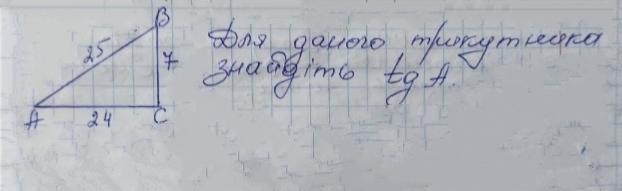 B
25
7
A
24
C
Для даного трикутника
знайдіть tg A.